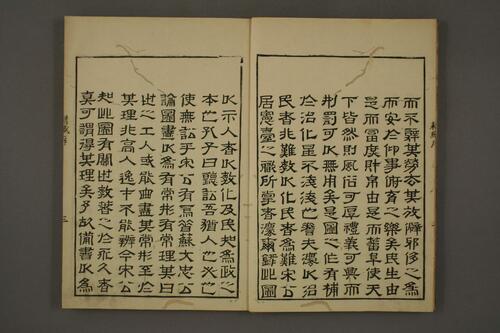 而不辭其勞去其放僻邪侈之為
而安於仰事俯育之樂矣民生由
是而富庶財帛由是而蕃阜使天
下皆然則風俗可厚禮義可興而
刑罰可以無用矣是圖之作有補
於治化豈不淺淺也哉夫以治
民者非難以化民者為難宋公
居憲臺之職所掌者爾歸此圖
以示人者以教化及民知為政之
本也孔子曰聽訟吾猶人也必也
使無訟乎宋公有焉昔蘇文忠公
論圖畫以為有常形有常理其曰
世之工人或能曲盡其常形至於
其理非高人逸士不能辨今宋公
知此圖有關世教者之於永久者
真可謂得其理矣乎故備書以為
三